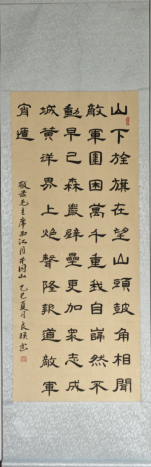 山下旌旗在望山頭鼓角相聞
敵軍圍困萬千重我自巋然不
動早已森嚴壁壘更加衆志成
城黃洋界上炮聲隆報道敵軍
宵遁
敬录毛主席西江月井岡山 乙巳夏月良